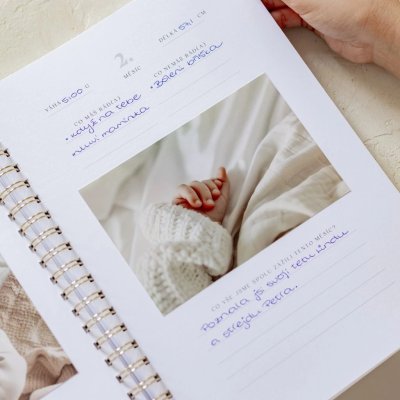 2.
MĚSÍC
VÁHA 5,00 U
DÉLKA 59,1 CM
CO MÁŠ RÁD(A)
• když na tebe
mluví maminka
CO NEMÁŠ RÁD(A)
• Bolení bříška
CO VŠE JSME SPOLU ZAŽILI TENTO MĚSÍC?
Poznala jsi svoji tetu
a strejdu Petra.